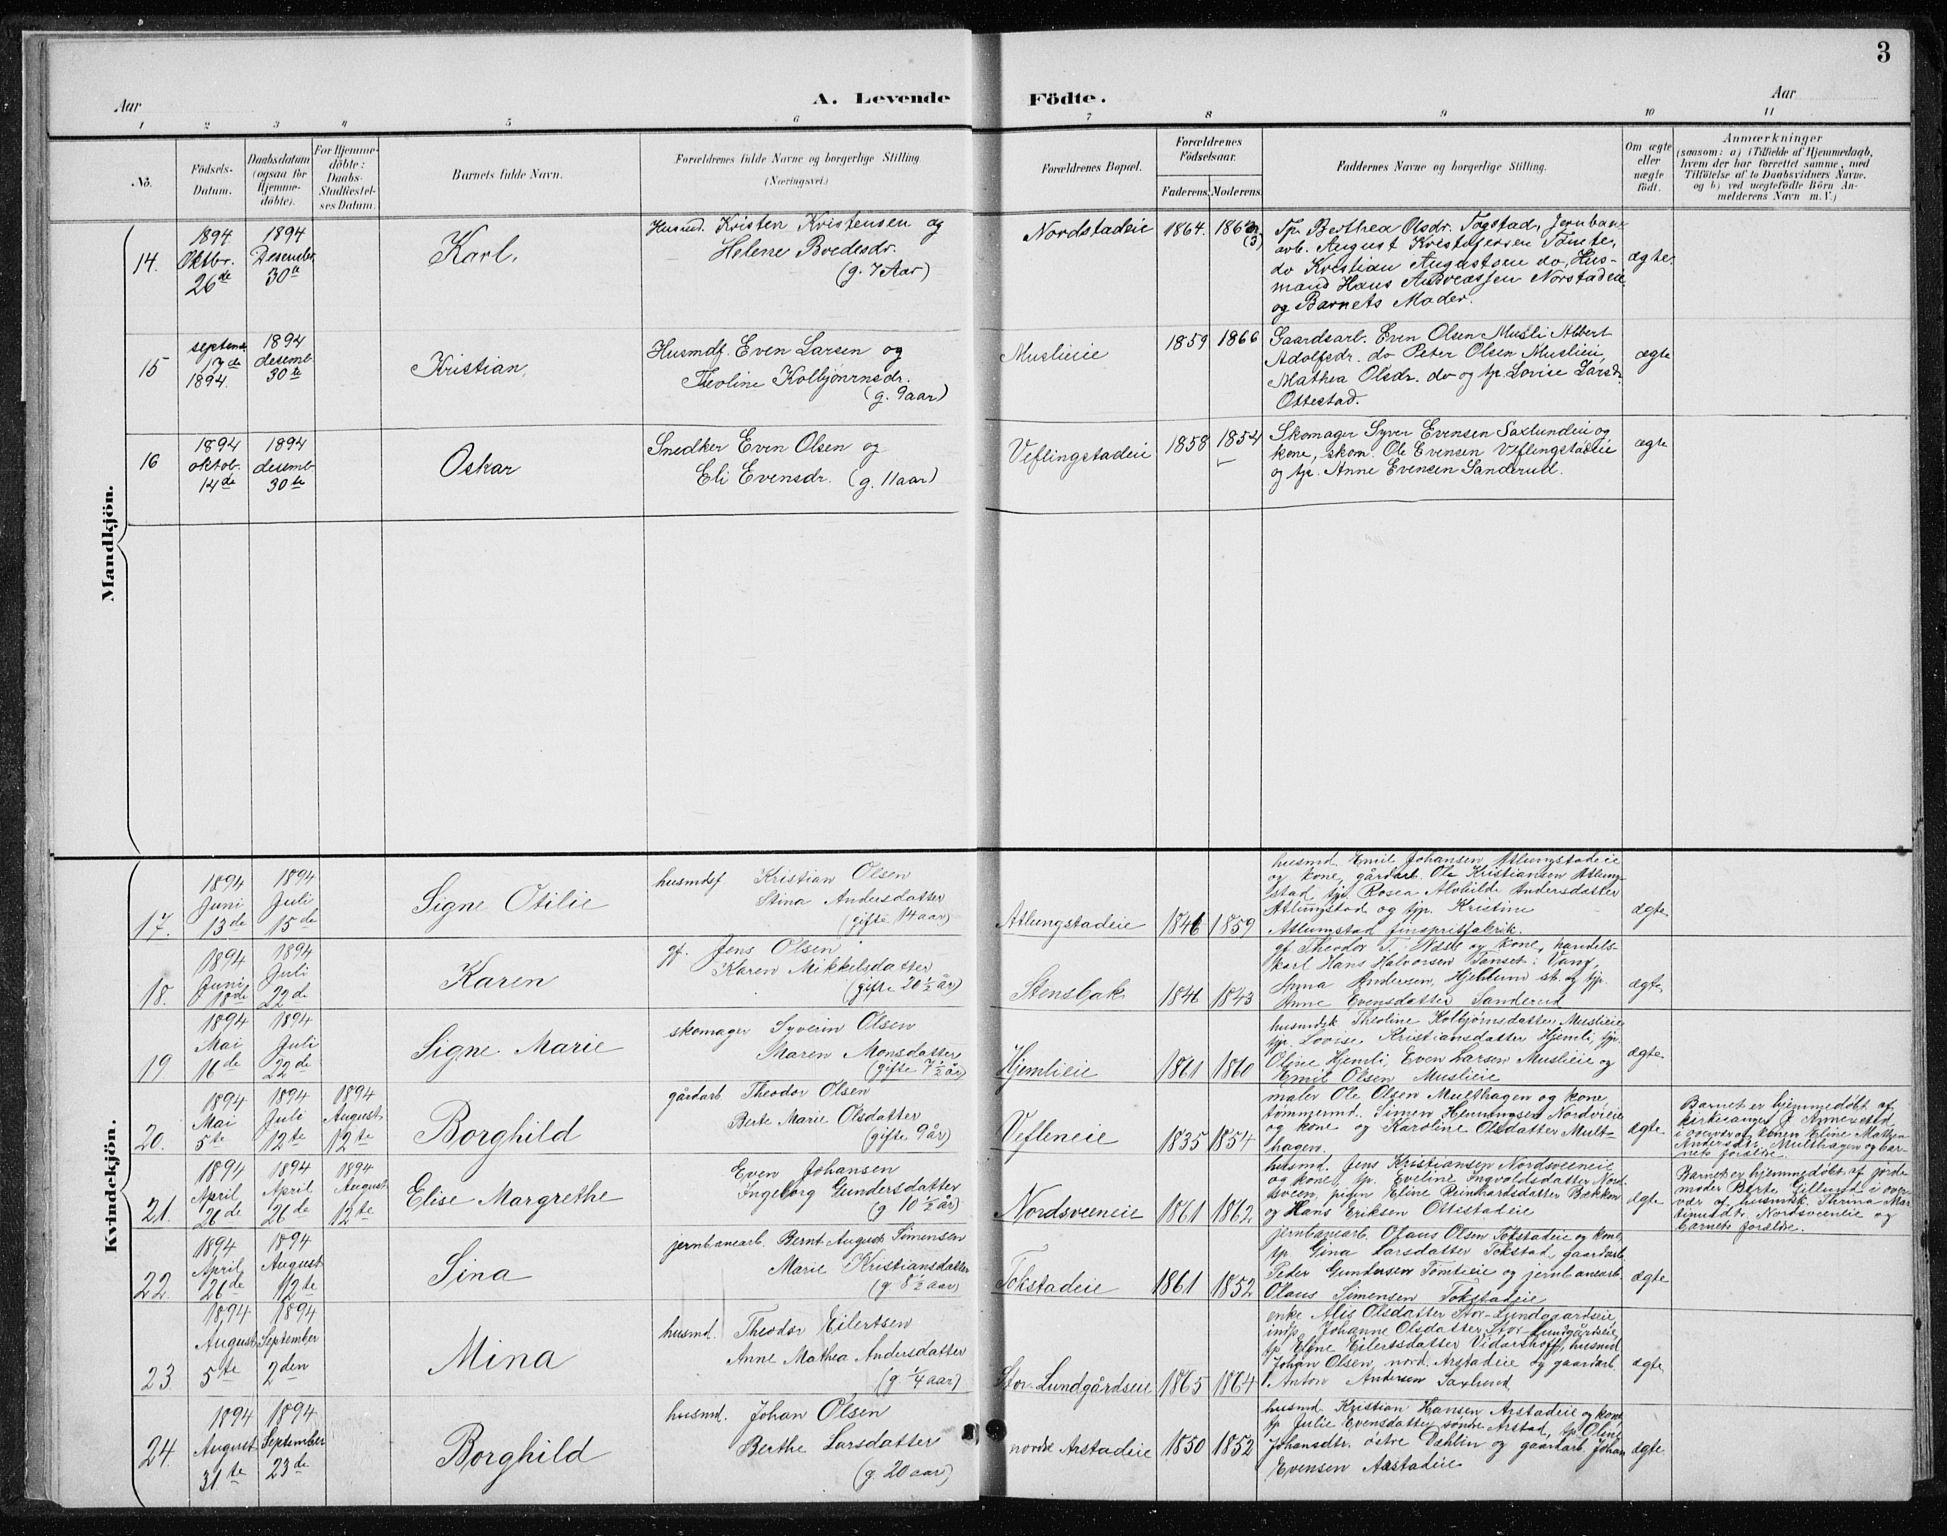 3
Aar
A. Levende Födte.
Aar
1 2 3 4 5 6 7 8 9 10 11
No.
Födsels-
Datum.
Daabsdatum
(ogsaa for
Hjemme-
döbte).
For Hjemme-
döbte:
Daabs-
Stadfæstel-
ses Datum.
Barnets fulde Navn.
Forældrenes fulde Navne og borgerlige Stilling
(Næringsvei.)
Forældrenes Bopæl.
Forældrenes
Födselsaar.
Faderens. Moderens.
Faddernes Navne og borgerlige Stilling.
Om ægte
eller
uægte
födt.
Anmærkninger
(saasom: a) i Tilfælde af Hjemmedaab,
hvem der har forrettet samme, med
Tilföielse af to Daabsvidners Navne.
og b) ved uægtefödte Börn An-
melderens Navn m. V.)
Mandkjön.
14.
1894
Oktbr.
26de
1894
Desember
30te
Karl.
Husmd. Kristen Kristensen og
Helene Bredesdr.
(g. 7 Aar)
Nordstadeie
1864.
(3)
Tp. Berthea Olsdr. Togstad, Jernban-
arb. August Kristofersen Tomte,
do Kristian Augustsen do, Hus-
mand Hans Andreassen Norstadeie
og Barnets Moder.
ægte.
15
septemb
17de
1894.
1894
desemb
30te
Kristian.
Husmdf. Even Larsen og
Theoline Kolbjönrnsdr.
(g. 9aar)
Muslieie
1859
1866
Gaardsarb. Even Olsen Musli Albert
Adolfsdr. do Peter Olsen Muslieie,
Mathea Olsdr. do og tp. Lovise Larsdr.
Ottestad.
ægte
16
1894
oktob.
14de
1894
desemb-
30te
Oskar
Snedker Even Olsen og
Eli Evensdr. (g. 11aar)
Veflingstadeie
1858
1854
Skomager Syver Evensen Saxlundeie og
kone, skom. Ole Evensen Veflingstadeie
og tp. Anne Evensen Sanderud.
ægte
Kvindekjön.
17.
1894
Juni
13de
1894
Juli
15de
Signe Otilie
husmdsf Kristian Olsen
Stina Andersdatter
(gifte 14aar)
Atlungstadeie
1846
1859
husmd. Emil Johansen Atlungstadeie
og kone, gårdarb. Ole Kristiansen Atlung-
stad, tp. Rosea Alvhilde Andersdatter
Atlungstad og tp. Kristine
Atlungstad finspritfabrik.
ægte
18.
1894
Juni
18de
1894
Juli
22de
Karen
gf. Jens Olsen
Karen Mikkelsdatter
(gifte 20 1/2 år)
Stensbak
1846
1843
gf. Theodor T. og kone, handels-
karl Hans Halvorsen Tanset i Vang,
Anna Andersen, Hjellum st. og tp.
Anne Evensdatter Sanderud
ægte
19
1894
Mai
16de
1894
Juli
22de
Signe Marie
skomager Syverin Olsen
Maren Monsdatter
(gifte 7 1/2 år)
Hjemlieie
1861
1860
husmdsk Theoline Kolbjørnsdatter Muslieie
tp. Lovise Kristiansdatter Hjemli, tp.
Oline Hjemli, Even Larsen Muslieie og
Emil Olsen Muslieie
ægte
20.
1894
Mai
5te
1894
Juli
12te
1894
August
12te
Borghild
gårdarb Theodor Olsen
Berte Marie Olsdatter
(gifte 9 år)
Vefleneie
1835
1854
maler Ole Olsen Multhagen og kone,
tømmermd. Simen Henningsen Nordvieie
og kone og Karoline Olsdatter Mult-
hagen.
ægte
Barnet er hjemmedøbt af
kirkesanger J.
i overvær af konen Eline Mathea
Andersdtr. Multhagen og bar-
nets forældre.
21.
1894
April
26de
1894
April
26de
1894
August
12te
Elise Margrethe
Even Johansen
Ingeborg Gundersdatter
(g 10 1/2 år)
Nordsveeneie
1861
1862
husmd. Jens Kristiansen Nordsveeneie
og kone, tp. Eveline Ingvoldsdatter Nord-
sveen, pigen Eline Reinhardsdatter Bækken
og Hans Eriksen Ottistadeie
ægte
Barnet er hjemmedøbt af jorde-
moder Birte Gillund i over-
vær af husmdsk. Mar-
tinusdtr. Nordsveeneie og
barnets forældre.
22.
1894
April
26de
1894
August
12te
Sina
jernbanearb. Bernt August Simensen
Marie Kristiansdatter
(g. 8 1/2 aar)
Tokstadeie
1861
1852
jernbanearb. Olaus Olsen Tokstadeie og kone
tp. Gina Larsdatter Tokstad, gaardarb
Peder Gundersen Tomteie og jernbanearb
Olaus Simensen Tokstadeie
ægte
23
1894
August
5te
1894
September
2den
Mina
husmd. Theodor Eilertsen
Anne Mathea Andersdatter
(g 1/4 aar)
Stor-Lundgårdseie
1865
1864
enke Alis Olsdatter Stor-Lundgaardseie
indp. Johanne Olsdatter Stor Lundgårdseie,
tp Eline Eilertsdatter Vidarshoff, husmd
Johan Olsen, nord. Arstadeie og gaardarb
Anton Andersen Saxlund
ægte
24.
1894
August
31te
1894
September
23de
Borghild
husmd. Johan Olsen
Berthe Larsdatter
(g. 20 aar)
nordre Arstadeie
1850
1852
husmd. Kristian Hansen Arstadeie og kone
tp Julie Evensdatter søndre Arstad, tp Oline
Johansdtr. østre Dæhlin og gaardarb. Johan
Evensen Arstadeie
ægte